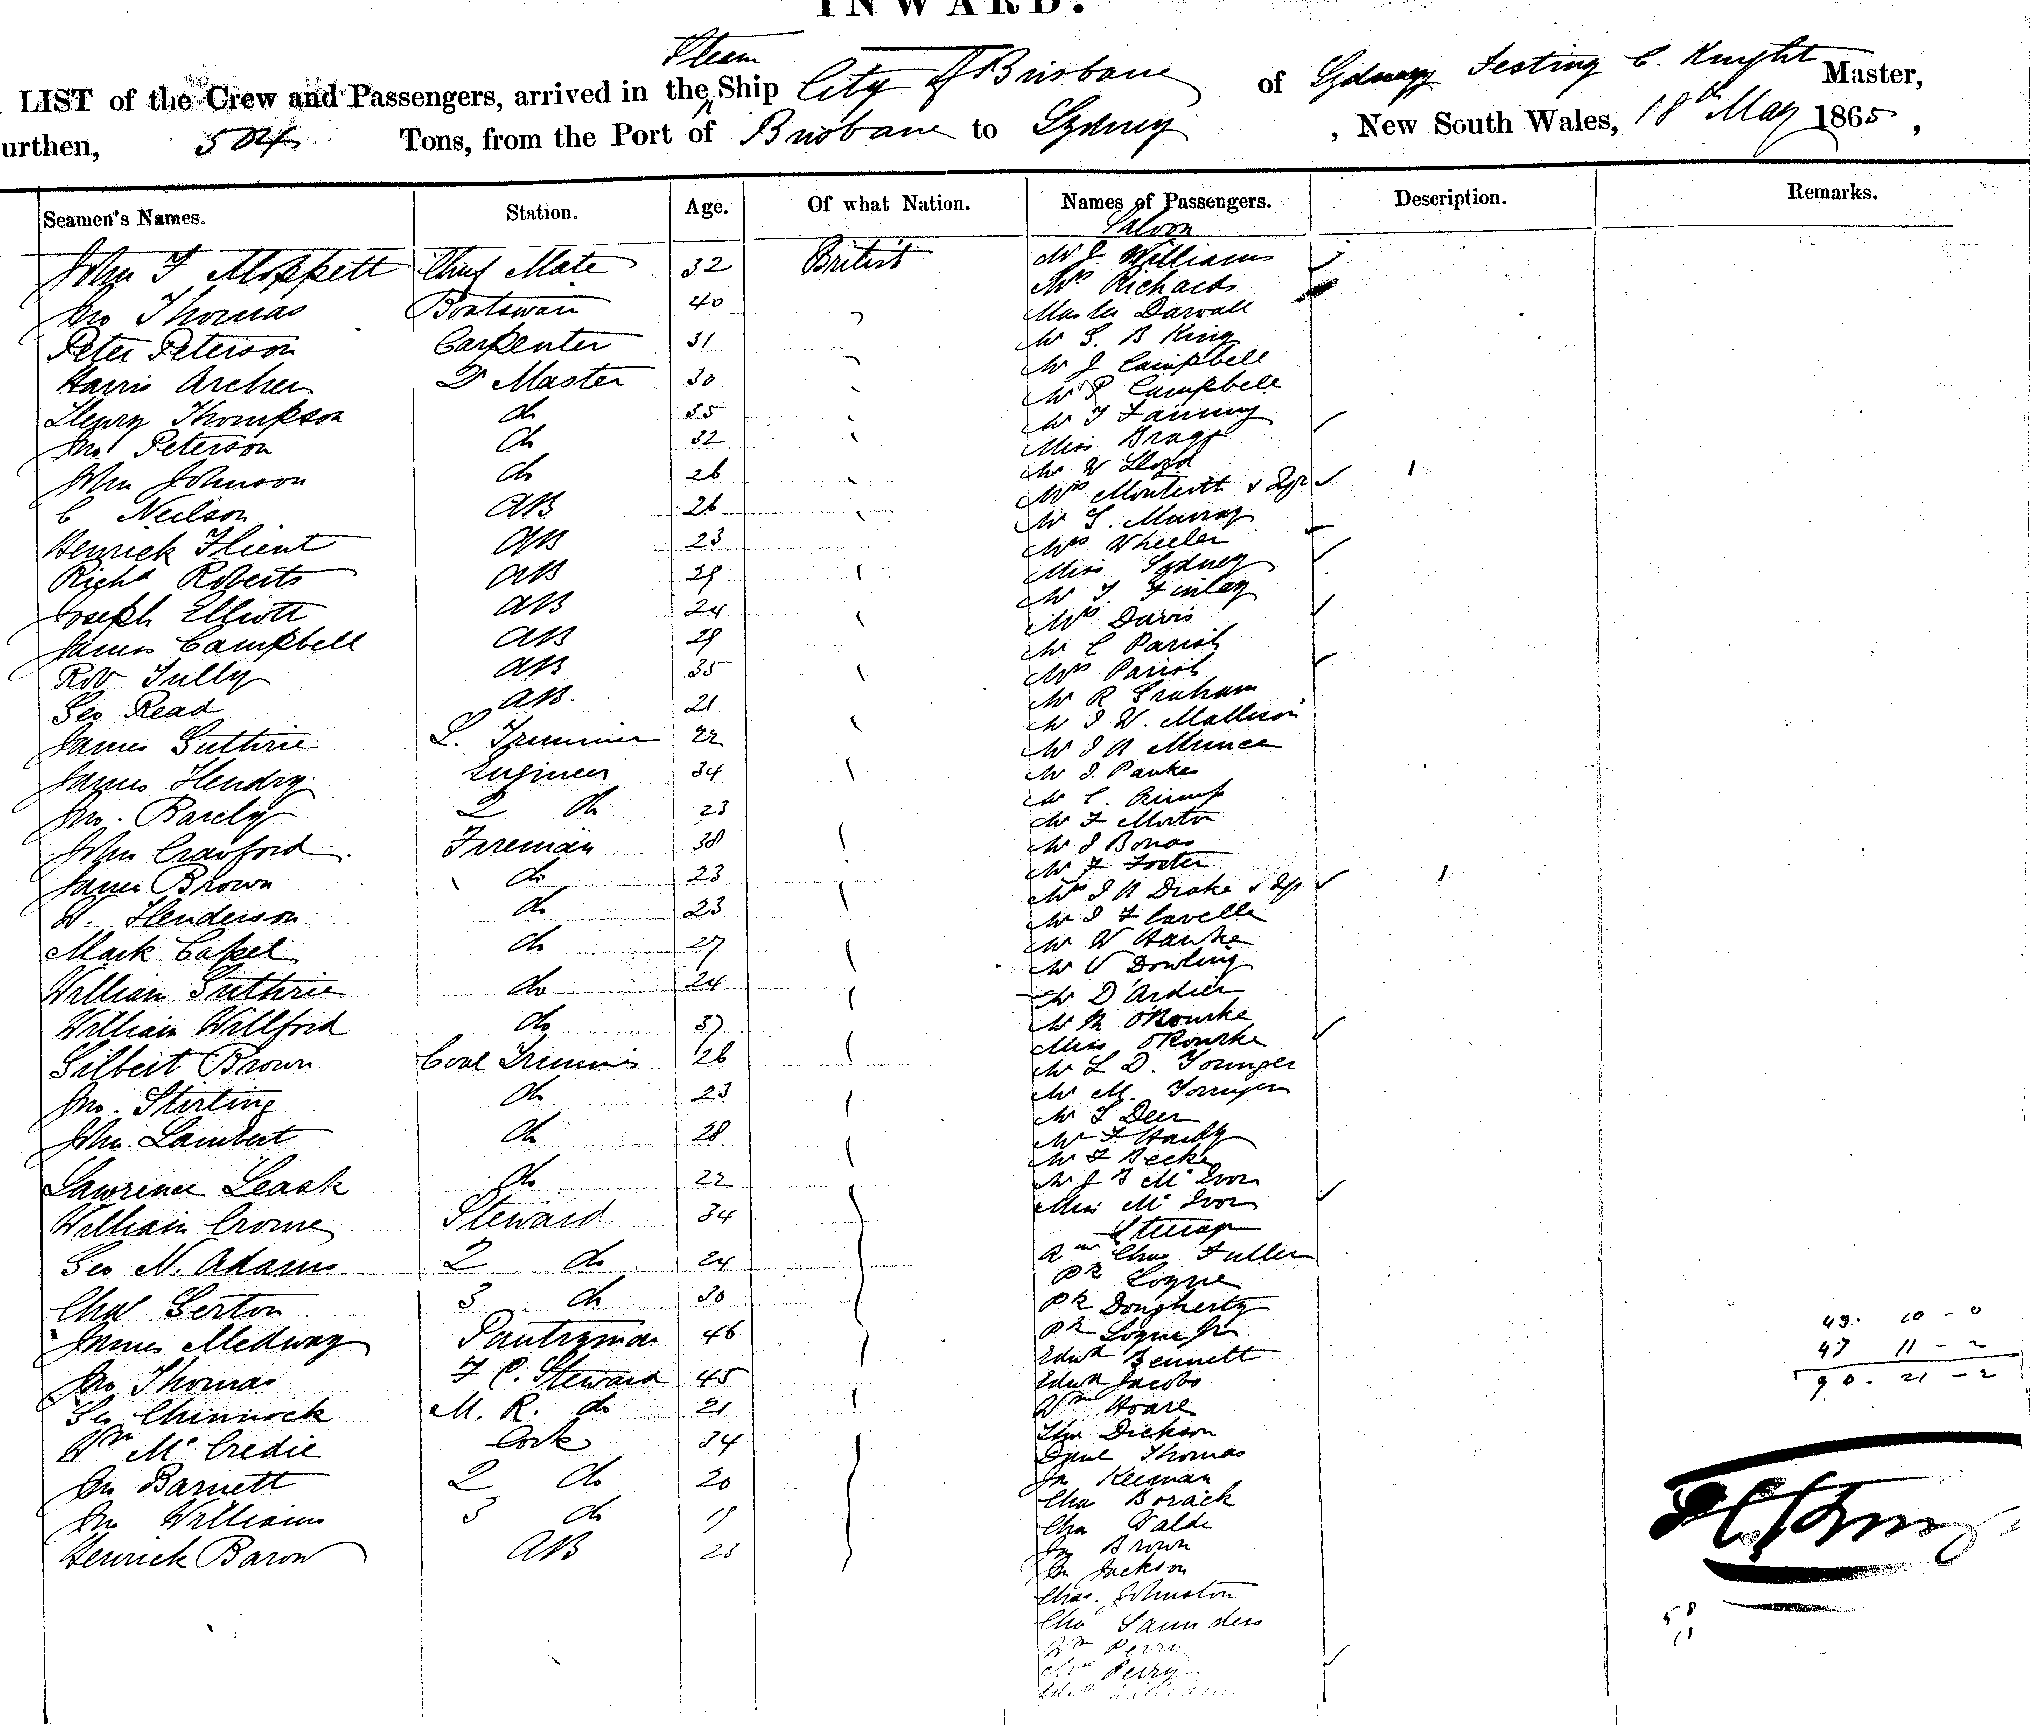 INWARD.
Steam
LIST of the Crew and Passengers, arrived in the Ship City of Brisbane of Sydney Testing C. Knight Master,
urthen, 504 Tons, from the Port of Brisbane to Sydney , New South Wales, 18th May 1865 ,
Seamen's Names. Station. Age. Of what Nation. Names of Passengers. Description. Remarks.
Saloon
John T Moppett Chief Mate 32 British Mr J. Williams
Mrs Richards
Jno Thomas Boatswain 40 Master Darvall
Peter Peterson Carpenter 31 Mr S. B King
Mr J Campbell
Harris Archer Master 30 Mr P Campbell
Henry Thompson do 35 Mr T Fanning
Jno Peterson do 32 Miss Bragg
John Johnson do 26 Mr W Lloyd
Mrs Monteith &
C Neilson AB 26 Mr S. Murray
Henrick Flient AB 23 Mrs Wheeler
Richd Roberts AB 29 Miss Sydney
Mr T Finlay
Joseph Elliott AB 24 Mrs Davis
James Campbell AB 29 Mr C Parish
Rob Tully AB 35 Mrs Parish
Mr R Graham
Geo Read AB. 21 Mr J W. Mallison
James Guthrie L. Trimmer 22 Mr J A Munce
James Hendry Engineer 34 Mr J. Pauke
Mr C.
Jno. Barcly 2 do 23 Mr F Morton
John Crawford Fireman 38 Mr J Bonas
Mr F Foster
James Brown do 23 Mrs J A Drake &
W. Henderson do 23 Mr J F Cavelle
Mark Capel do 27 Mr W Hawke
Mr V Dowling
William Guthrie do 24 Mr D'Ardier
William Willford do 37 Mr M O'Rourke
Miss O'Rourke
Gilbert Brown Coal Trimmer 26 Mr L D. Younger
Jno. Stirling do 23 Mr M. Younger
Mr S Deer
John Lambert do 28 Mr F Hardy
Mr F Becke
Lawrence Leask do 22 Mr J B McIvor
Miss McIvor
William Crome Steward 34 Steerage
Chas Fuller
Geo N. Adams 2 do 24 Pk Logue
Chas Serton 3 do 30 Pk Dougherty
James Medway Pantryman 46 Pk Logue Jr
Edwd Bennett
Jno Thomas F C. Steward 45 Edwd Jacobs
Geo Chinnock M. R. do 21 Wm Hoare
Wm McCredie Cook 34 Thos Dickson
Danl Thomas
Jno Barnett 2 do 20 Jn Keenan
Chas Borack
Jno Williams 3 do Chas Walde
Henrick Baron AB 23 Jn Brown
Jn Jackson
Chas. Johnston
Chas Saunders
Wm Perry
Mrs Perry
49. 10 - 0
47 11 - 2
90. 21 - 2